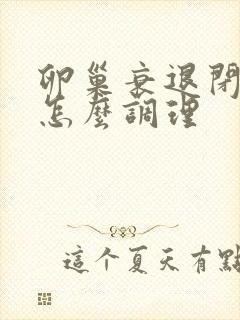 卵巢衰退閉
怎麼調理
這个夏天有點